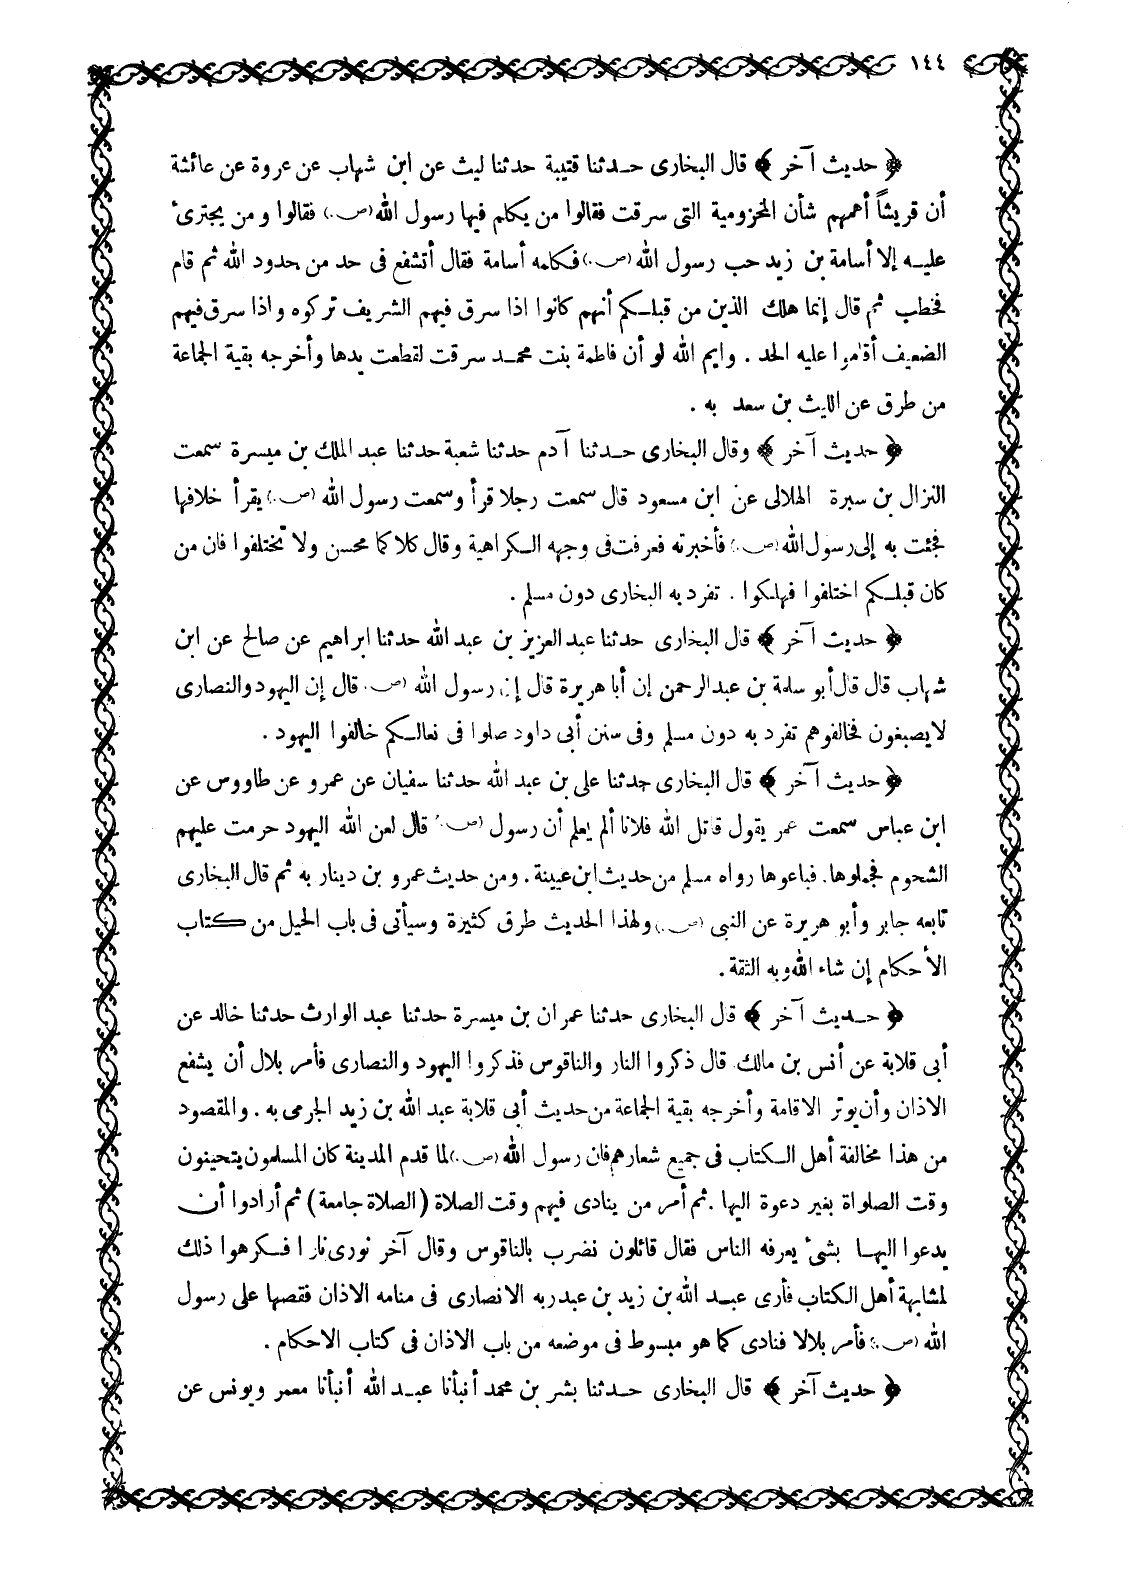 ١٤٤
﴿ حديث آخر ﴾ قال البخارى حدثنا قتيبة حدثنا ليث عن ابن شهاب عن عروة عن عائشة
أن قريشاً أهمهم شأن المخزومية التى سرقت فقالوا من يكلم فيها رسول الله (ص.) فقالوا ومن يجترىء
عليه إلا أسامة بن زيد حب رسول الله (ص.) فكلمه أسامة فقال أتشفع فى حد من حدود الله ثم قام
فخطب ثم قال إنما هلك الذين من قبلكم أنهم كانوا اذا سرق فيهم الشريف تركوه واذا سرق فيهم
الضعيف أقاموا عليه الحد . وايم الله لو أن فاطمة بنت محمد سرقت لقطعت يدها وأخرجه بقية الجماعة
من طرق عن الليث بن سعد به .
﴿ حديث آخر ﴾ وقال البخارى حدثنا آدم حدثنا شعبة حدثنا عبد الملك بن ميسرة سمعت
النزال بن سبرة الهلالى عن ابن مسعود قال سمعت رجلا قرأ وسمعت رسول الله (ص.) يقرأ خلافها
فجئت به إلى رسول الله (ص.) فأخبرته فعرفت فى وجهه الكراهية وقال كلاكما محسن ولا تختلفوا فان من
كان قبلكم اختلفوا فهلكوا . تفرد به البخارى دون مسلم .
﴿ حديث آخر ﴾ قال البخارى حدثنا عبد العزيز بن عبد الله حدثنا ابراهيم عن صالح عن ابن
شهاب قال قال أبو سلمة بن عبد الرحمن إن أبا هريرة قال إن رسول الله (ص. قال إن اليهود والنصارى
لا يصبغون فخالفوهم تفرد به دون مسلم وفى سنن أبى داود صلوا فى نعالكم خالفوا اليهود .
﴿ حديث آخر ﴾ قال البخارى حدثنا على بن عبد الله حدثنا سفيان عن عمرو عن طاووس عن
ابن عباس سمعت عمر يقول قاتل الله فلانا ألم يعلم أن رسول (ص.) قال لعن الله اليهود حرمت عليهم
الشحوم فجملوها. فباعوها رواه مسلم من حديث ابن عيينة . ومن حديث عمرو بن دينار به ثم قال البخارى
تابعه جابر وأبو هريرة عن النبى (ص.) ولهذا الحديث طرق كثيرة وسيأتى فى باب الحيل من كتاب
الأحكام إن شاء الله وبه الثقة .
﴿ حديث آخر ﴾ قال البخارى حدثنا عمران بن ميسرة حدثنا عبد الوارث حدثنا خالد عن
أبى قلابة عن أنس بن مالك قال ذكروا النار والناقوس فذكروا اليهود والنصارى فأمر بلال أن يشفع
الاذان وأن يوتر الاقامة وأخرجه بقية الجماعة من حديث أبى قلابة عبد الله بن زيد الجرمى به . والمقصود
من هذا مخالفة أهل الكتاب فى جميع شعارهم فان رسول الله (ص.) لما قدم المدينة كان المسلمون يتحينون
وقت الصلواة بغير دعوة اليها . ثم أمر من ينادى فيهم وقت الصلاة ( الصلاة جامعة ) ثم أرادوا أن
يدعوا اليها بشىء يعرفه الناس فقال قائلون نضرب بالناقوس وقال آخر نورى نارا فكرهوا ذلك
لمشابهة أهل الكتاب فأرى عبد الله بن زيد بن عبد ربه الانصارى فى منامه الاذان فقصها على رسول
الله (ص.) فأمر بلالا فنادى كما هو مبسوط فى موضعه من باب الاذان فى كتاب الاحكام .
﴿ حديث آخر ﴾ قال البخارى حدثنا بشر بن محمد أنبأنا عبد الله أنبأنا معمر ويونس عن